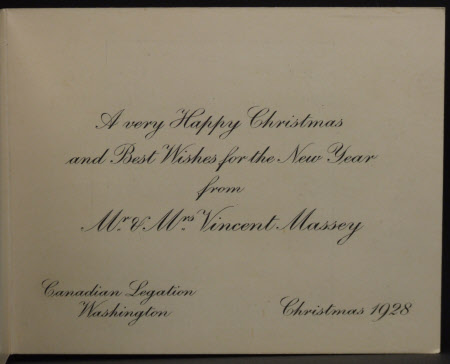 A very Happy Christmas
and Best Wishes for the New Year
from
Mr. & Mrs. Vincent Massey
Canadian Legation
Washington
Christmas 1928